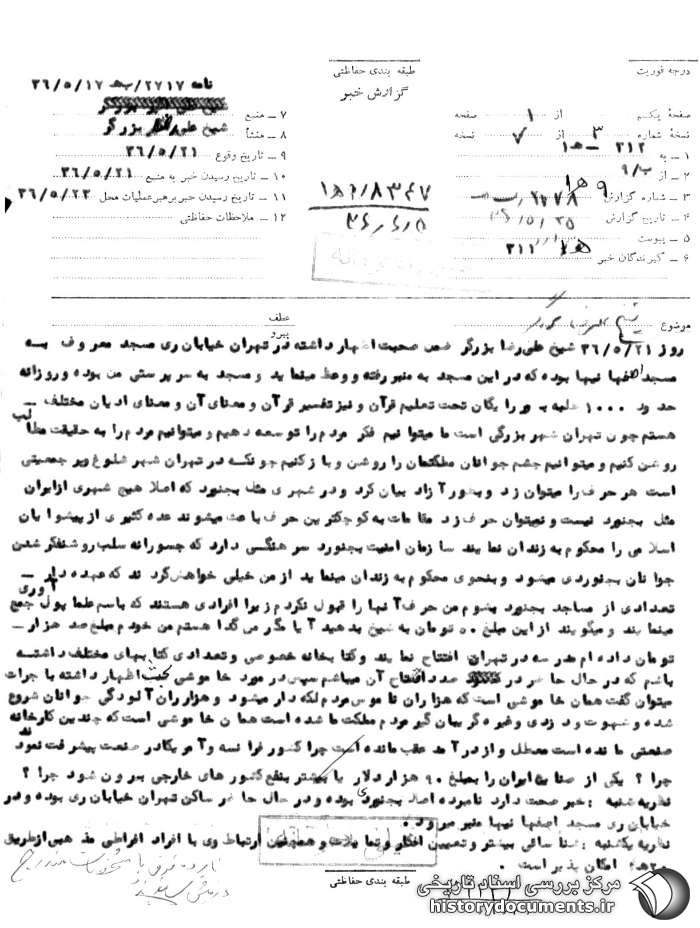 درجه فوریت
طبقه بندی حفاظتی
گزارش خبر
نامه ۲۷۱۷/ ۳۶/۵/۱۷
صفحهٔ یکم از ۱ صفحه
نسخهٔ شماره ۳ از ۷ نسخه
۱ – به ۳۱۲
۲ – از ۹/
۳ – شماره گزارش
۴ – تاریخ گزارش
۵ – پیوست
۶ – گیرندگان خبر ۳۱۱
۷ – منبع
۸ – منشأ شیخ علیرضا بزرگر
۹ – تاریخ وقوع ۳۶/۵/۲۱
۱۰ – تاریخ رسیدن خبر به منبع ۳۶/۵/۲۱
۱۱ – تاریخ رسیدن خبر برهبر عملیات محل ۳۶/۵/۲۳
۱۲ – ملاحظات حفاظتی
موضوع
عطف
پیرو
روز ۳۶/۵/۲۱ شیخ علی رضا بزرگر ضمن صحبت اظهار داشته در تهران خیابان ری مسجد معروف به
مسجد اصفها نیها بوده که در این مسجد به منبر رفته و وعظ مینماید و مسجد به سرپرستی من بوده و روزانه
حدود ۱۰۰۰ را یگان تحت تعلیم قرآن و نیز تفسیر قرآن و معنای آن و معنای ادیان مختلف
هستم چون تهران شهر بزرگی است ما میتوانیم فکر مردم را توسعه دهیم و میتوانیم مردم را به حقیقت مطلب
روشن کنیم و میتوانیم چشم جوانان مملکتمان را روشن و باز کنیم چونکه در تهران شهر شلوغ وپر جمعیتی
است هر حرف را میتوان زد و بطور آزاد بیان کرد و در شهری مثل بجنورد که اصلا هیچ شهری از ایران
مثل بجنورد نیست و نمیتوان حرف زد مقامات به کوچکترین حرف باعث میشوند عده کثیری از پیشوایان
اسلامی را محکوم به زندان نمایند سازمان امنیت بجنورد سرهنگی دارد که جسورانه سلب روشنفکر شدن
جوانان بجنوردی میشود و بنحوی محکوم به زندان مینماید از من خیلی خواهش کردند که عهده دار
تعدادی از مساجد بجنورد بشوم من حرف آنها را قبول نکردم زیرا افرادی هستند که باسم علما پول جمع آوری
مینمایند و میگویند از این مبلغ ۵۰ تومان به شیخ بدهید آیا مگر من گدا هستم من خودم مبلغ صد هزار
تومان داده ام مدرسه در تهران افتتاح نمایند و کتابخانه خصوصی و تعدادی کتابهای مختلف داشته
باشم که در حال حاضر در صدد افتتاح آن میباشم سپس در مورد خاموشی اظهار داشته با جرات
میتوان گفت همان خاموشی است که هزاران ناموس مردم لکه دار میشود و هزاران آلودگی جوانان شروع
شده و شهوت و دزدی و غیره گریبان گیر مردم مملکت ما شده است همان خاموشی است که چندین کارخانه
صنعتی مانده است معطل و از درآمد عقب مانده است چرا کشور فرانسه و آمریکا در صنعت پیشرفت نمودند
چرا ؟ یکی از ایران را بمبلغ ۹۰ هزار دلار یا بیشتر بنفع کشورهای خارجی بیرون شود چرا ؟
نظریه شنبه : خبر صحت دارد نامبرده اصلا بجنوردی بوده و در حال حاضر ساکن تهران خیابان ری بوده و در
خیابان ری مسجد اصفها نیها منبر میرود .
نظریه یکشنبه : شناسائی بیشتر و تعیین افکار و تمایلات و همچنین ارتباط وی با افراد افراطی مذهبی از طریق
امکان پذیر است .
طبقه بندی حفاظتی
مرکز بررسی اسناد تاریخی
historydocuments.ir